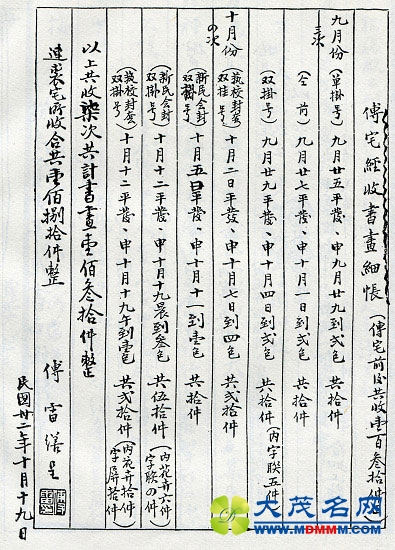 傅宅經收書畫細帳(傅宅前后共收壹百叁拾件)
九月份 三次
(單掛号) 九月廿五平發、申九月廿九到弍包 共拾件
(仝前) 九月廿七平發、申十月一日到弍包 共拾件
(双掛号) 九月廿九平發、申十月四日到弍包 共拾件(内字联五件)
十月份 の次
(藝校封套 双挂号) 十月二日平發、申十月七日到四包 共弍拾件
(新民会封 双掛号) 十月五日平發、申十月十一到壹包 共拾件
(新民会封 双掛号) 十月十二平發、申十月十九晨到叁包 共伍拾件(内花卉六件 字联の件)
(藝校封套 双掛号) 十月十二平發、申十月十九午到壹包 共弍拾件(内花卉拾件 字屏拾件)
以上共收柒次共計書畫壹佰叁拾件整
連裘宅所收合共壹佰捌拾件整
傅雷繕呈
民國卅二年十月十九日
大茂名网
WWW.MDMMM.COM